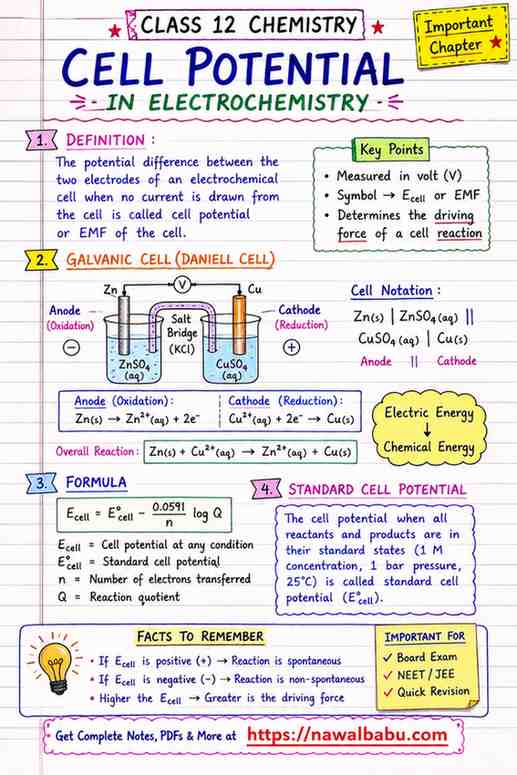 CLASS 12 CHEMISTRY
Important
Chapter
CELL POTENTIAL
IN ELECTROCHEMISTRY
1. DEFINITION :
The potential difference between the
two electrodes of an electrochemical
cell when no current is drawn from
the cell is called cell potential
or EMF of the cell.
Key Points
• Measured in volt (V)
• Symbol → Ecell or EMF
• Determines the driving
force of a cell reaction
2. GALVANIC CELL (DANIELL CELL)
Zn
V
Cu
Anode
(Oxidation)
Salt
Bridge
(KCl)
Cathode
(Reduction)
−
+
ZnSO₄
(aq)
CuSO₄
(aq)
Cell Notation :
Zn(s) | ZnSO₄(aq) ||
CuSO₄(aq) | Cu(s)
Anode || Cathode
Anode (Oxidation) :
Zn(s) → Zn²⁺(aq) + 2e⁻
Cathode (Reduction) :
Cu²⁺(aq) + 2e⁻ → Cu(s)
Overall Reaction : Zn(s) + Cu²⁺(aq) → Zn²⁺(aq) + Cu(s)
Electric Energy
↓
Chemical Energy
3. FORMULA
Ecell = E°cell − 0.0591/n log Q
Ecell = Cell potential at any condition
E°cell = Standard cell potential
n = Number of electrons transferred
Q = Reaction quotient
4. STANDARD CELL POTENTIAL
The cell potential when all
reactants and products are in
their standard states (1 M
concentration, 1 bar pressure,
25°C) is called standard cell
potential (E°cell).
FACTS TO REMEMBER
• If Ecell is positive (+) → Reaction is spontaneous
• If Ecell is negative (−) → Reaction is non-spontaneous
• Higher the Ecell → Greater is the driving force
IMPORTANT FOR
✓ Board Exam
✓ NEET / JEE
✓ Quick Revision
Get Complete Notes, PDFs & More at https://nawalbabu.com